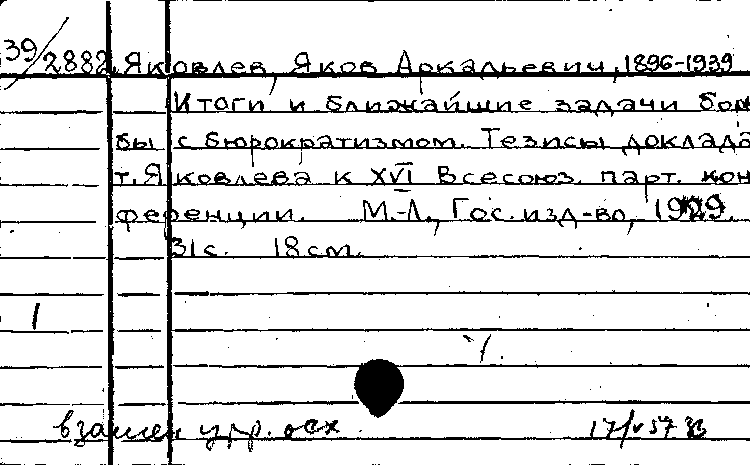 39/2882. Яковлев, Яков Аркадьевич, 1896-1939
Итоги и ближайшие задачи борь
бы с бюрократизмом. Тезисы доклада
т. Яковлева к XVI Всесоюз. парт. кон
ференции. М.-Л., Гос. изд-во, 1929.
31 с. 18 см.
1
взамен утр. осх